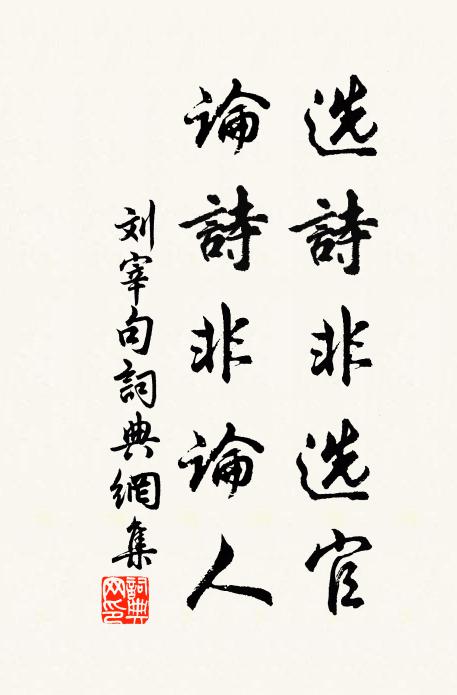 选詩非选官
論詩非論人
刘宰句詞典網集
詞典网印